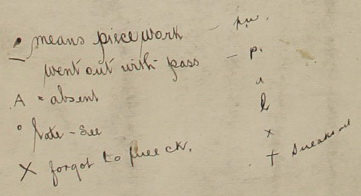 means piece work - pw.
went out with pass - p.
A = absent
° late - l
X forgot to
x
+ sneak out